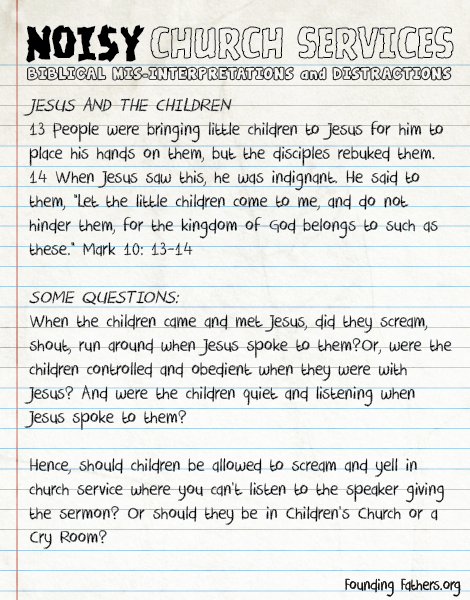 NOISY CHURCH SERVICES
BIBLICAL MIS-INTERPRETATIONS and DISTRACTIONS
JESUS AND THE CHILDREN
13 People were bringing little children to Jesus for him to
place his hands on them, but the disciples rebuked them.
14 When Jesus saw this, he was indignant. He said to
them, "Let the little children come to me, and do not
hinder them, for the kingdom of God belongs to such as
these." Mark 10: 13-14
SOME QUESTIONS:
When the children came and met Jesus, did they scream,
shout, run around when Jesus spoke to them?Or, were the
children controlled and obedient when they were with
Jesus? And were the children quiet and listening when
Jesus spoke to them?
Hence, should children be allowed to scream and yell in
church service where you can't listen to the speaker giving
the sermon? Or should they be in Children's Church or a
Cry Room?
Founding Fathers.org